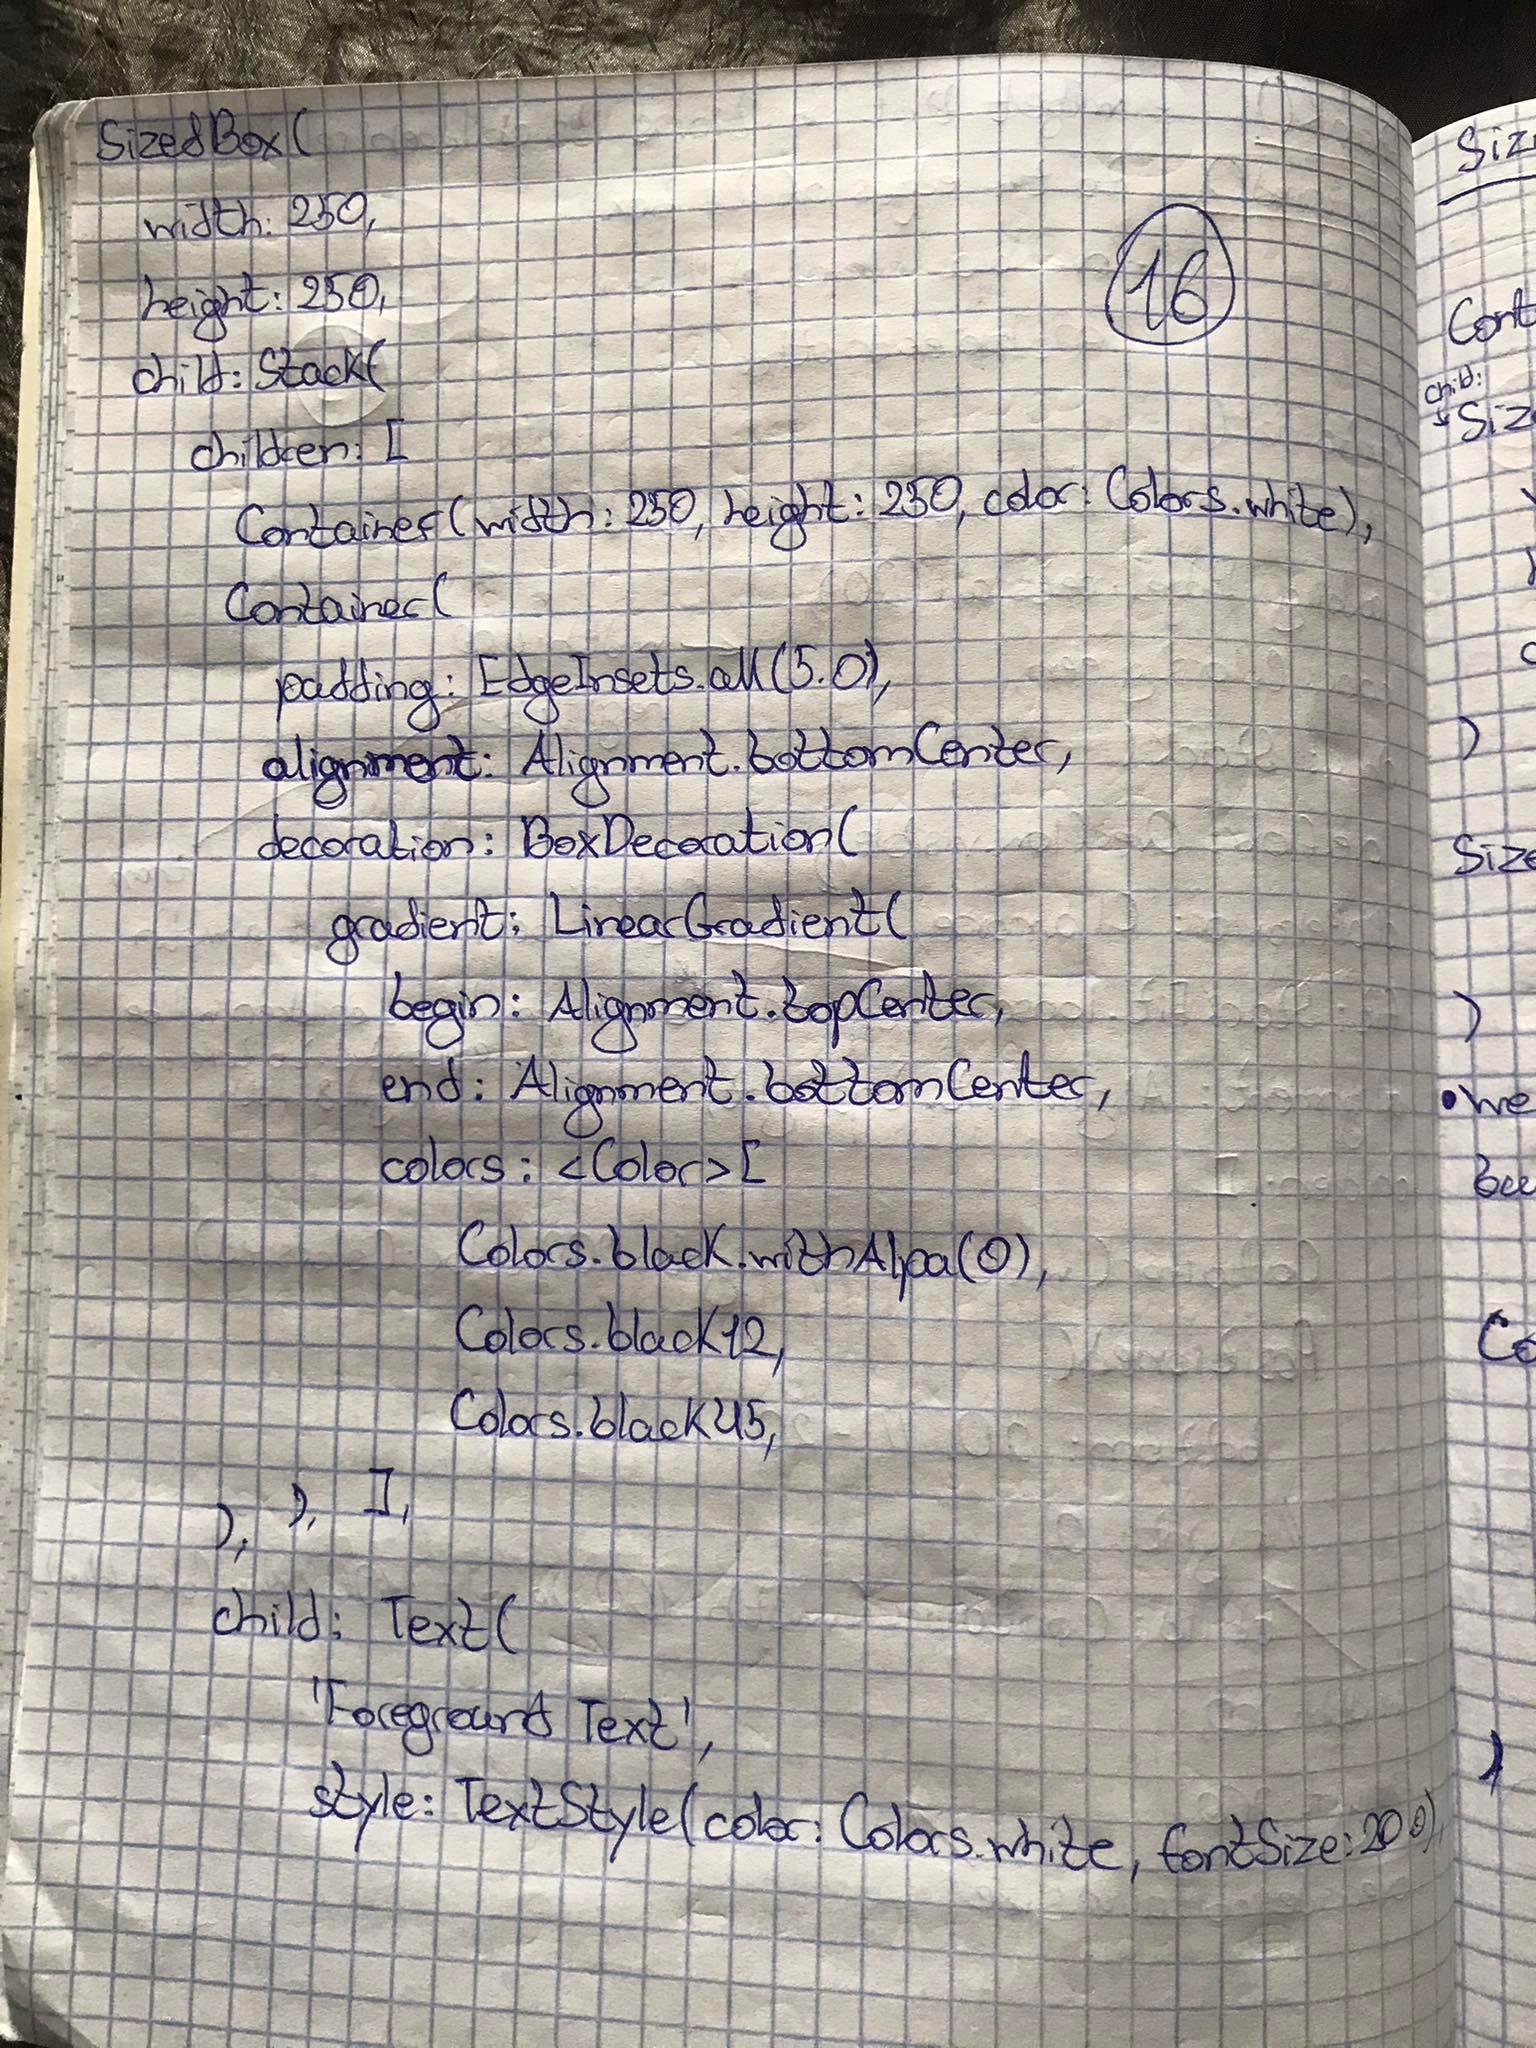 SizedBox(
width: 250,
height: 250,
child: Stack(
children: [
Container(width: 250, height: 250, color: Colors.white),
Container(
padding: EdgeInsets.all(5.0),
alignment: Alignment.bottomCenter,
decoration: BoxDecoration(
gradient: LinearGradient(
begin: Alignment.topCenter,
end: Alignment.bottomCenter,
colors: <Color>[
Colors.black.withAlpa(0),
Colors.black12,
Colors.black45,
), ), ],
child: Text(
'Foreground Text',
style: TextStyle(color: Colors.white, fontSize: 20.0),
16
Siz
Cont
child:
Size
)
Size
)
• We
Co
)